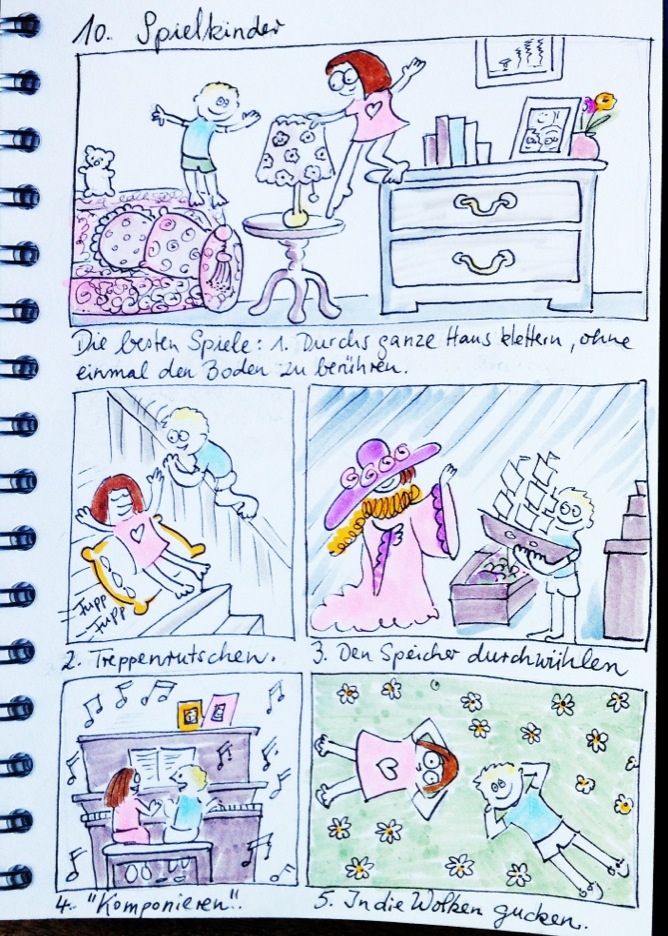 10. Spielkinder
Die besten Spiele: 1. Durchs ganze Haus klettern, ohne
einmal den Boden zu berühren.
Jupp
Jupp
2. Treppenrutschen.
3. Den Speicher durchwühlen
4. "Komponieren".
5. In die Wolken gucken.